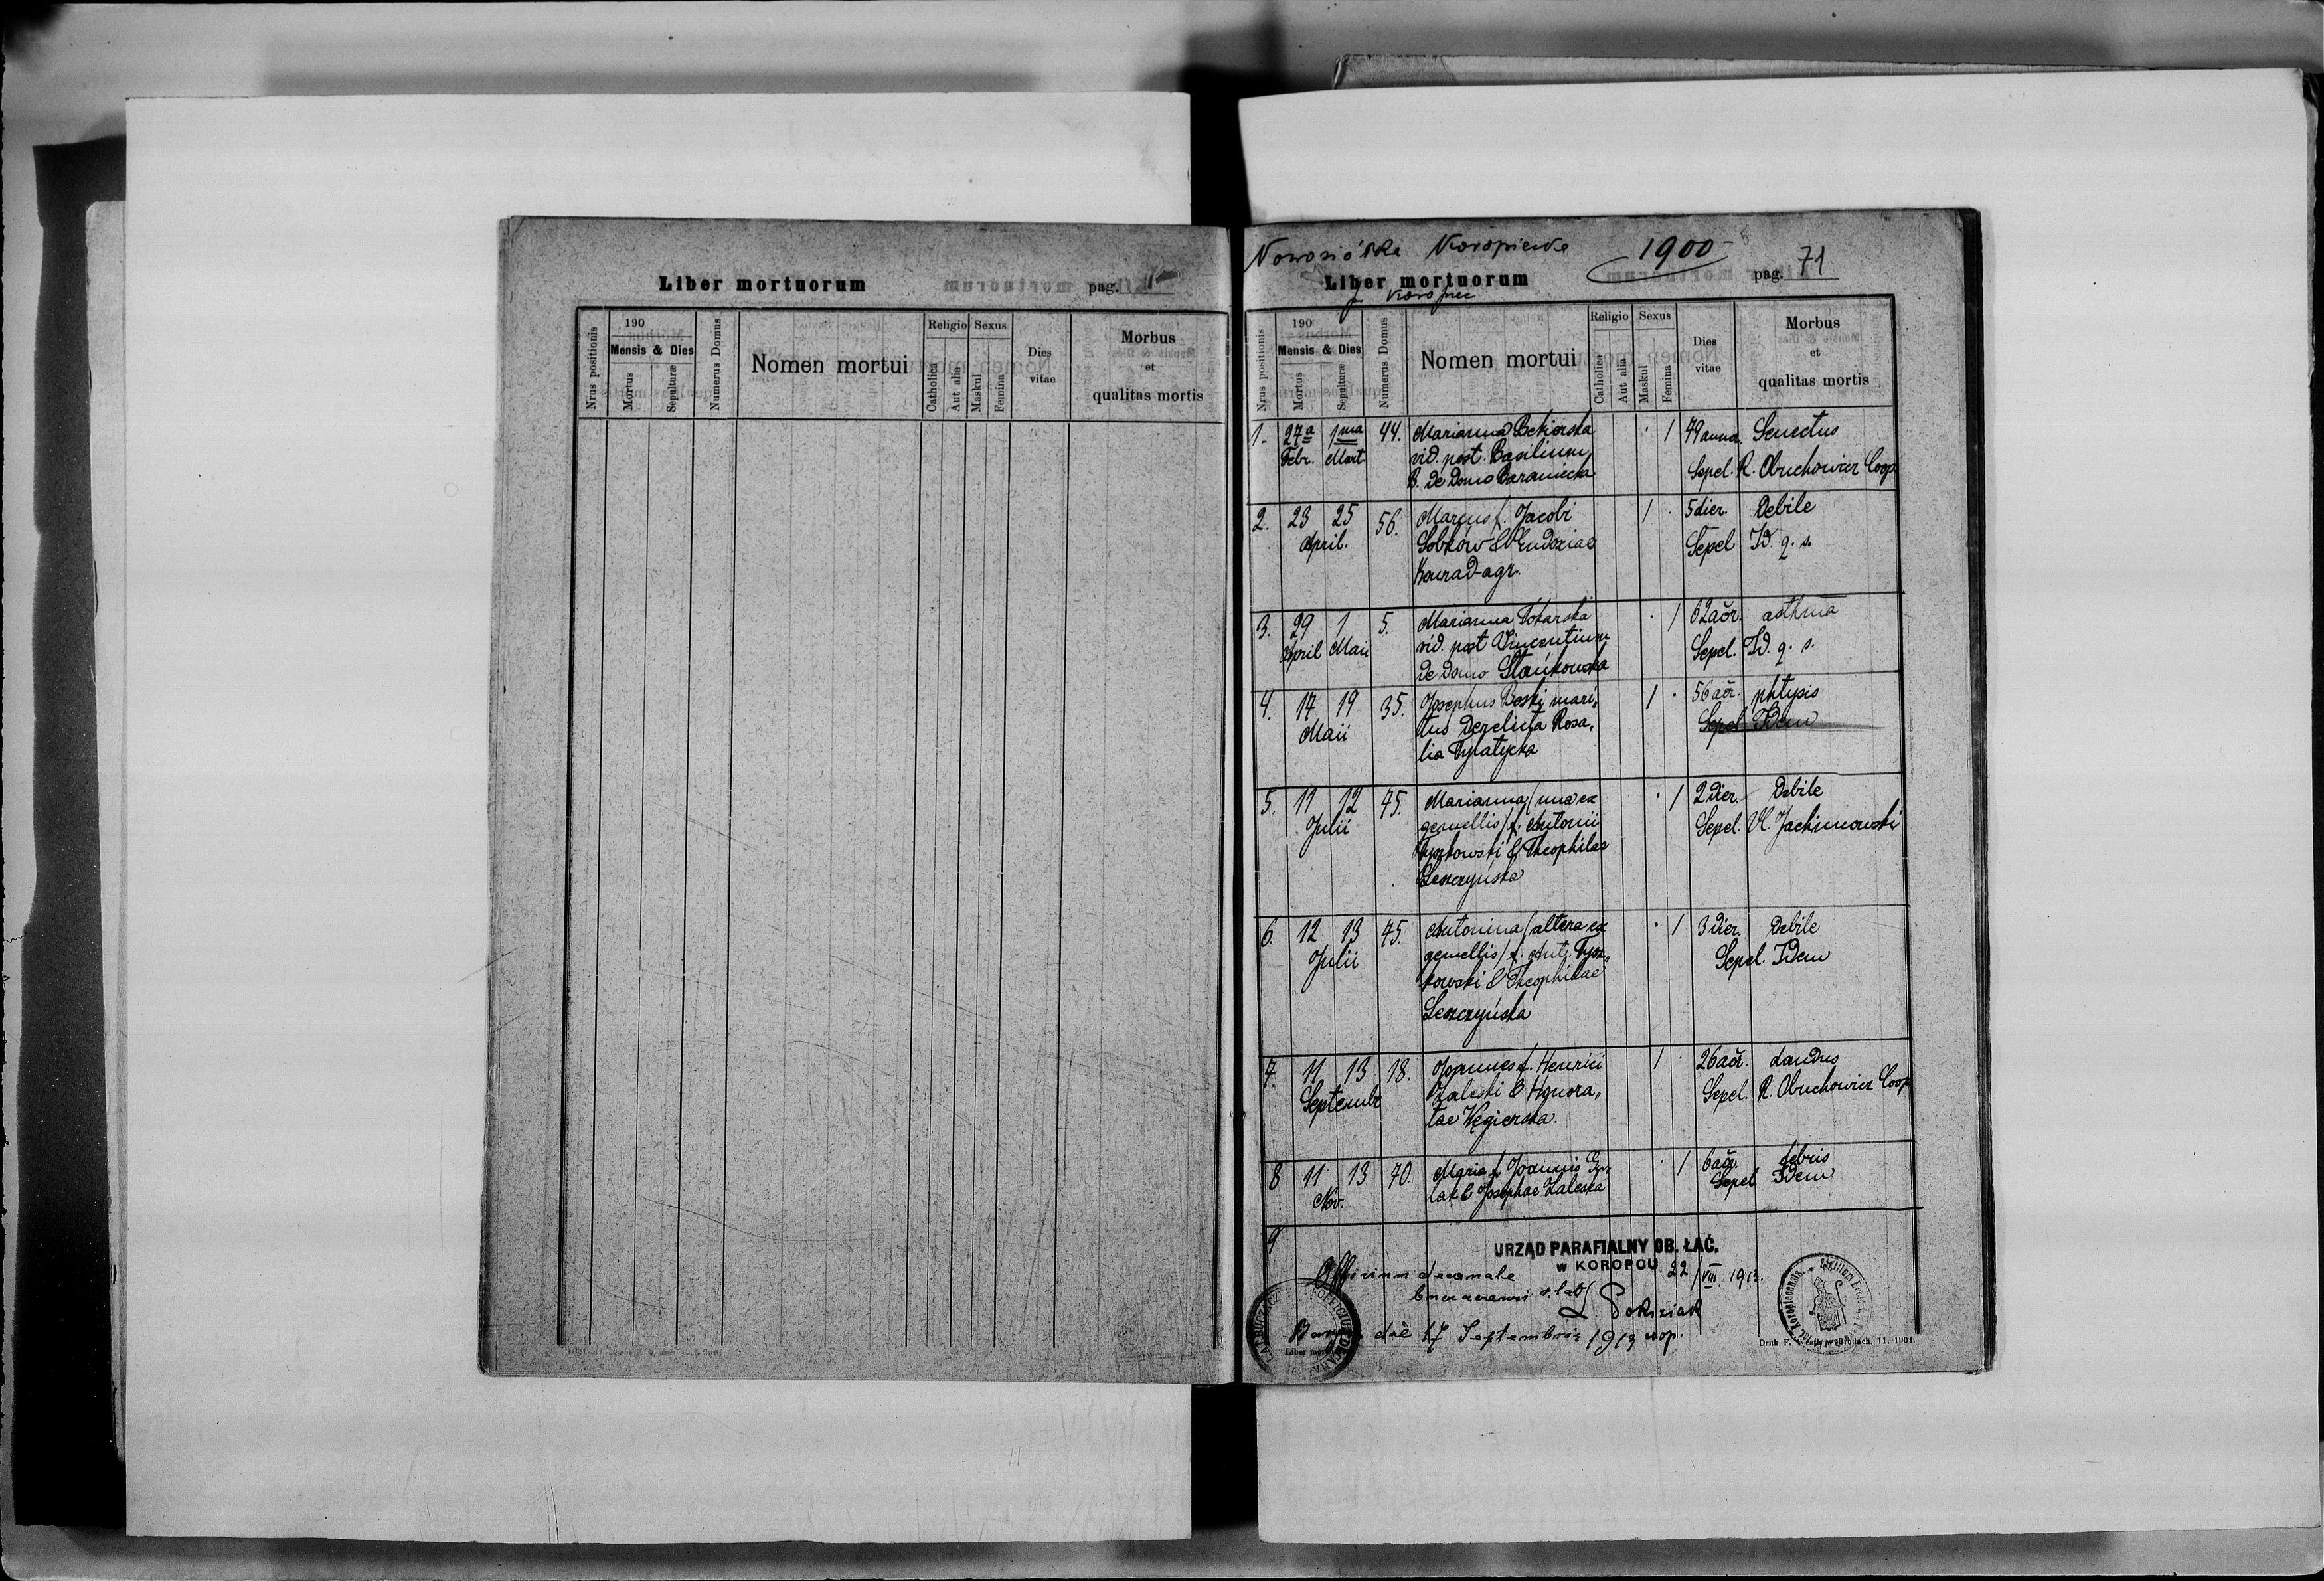 Liber mortuorum
pag.
Nrus positionis
190
Mensis & Dies
Mortus
Sepulturæ
Numerus Domus
Nomen mortui
Religio
Catholica
Aut alia
Sexus
Maskul
Femina
Dies
vitae
Morbus
et
qualitas mortis
Nowosiółka Koropiecka
1900
Liber mortuorum
pag. 71
Koropiec
Nrus positionis
190
Mensis & Dies
Mortus
Sepulturæ
Numerus Domus
Nomen mortui
Religio
Catholica
Aut alia
Sexus
Maskul
Femina
Dies
vitae
Morbus
et
qualitas mortis
1. 27a 1ma 44. Marianna 1 79 Senectus
Febr. Mart. vid. post. Basilium
B. de Domo Baraniecka Sepel. R. Obuchowicz Coop.
2. 23 25 56. Marcus f. Jacobi 1 5 dier. Debile
April. Sobków & Eudoxiae Sepel Id. q. s.
Konrad agr.
3. 29 1 5. Marianna Tokarska 1 62 aor. asthma
April Maii vid. post Vincentium Sepel. Id. q. s.
de Domo Stańkowska
4. 17 19 35. Josephus Beski mari„ 1 56 aor. phtysis
Maii tus derelicta Rosa„ Sepel Idem
lia
5. 11 12 45. Marianna (una ex 1 2 dier. Debile
Julii gemellis) f. Antonii Sepel. Vl. Jachimowski
Tyszkowski & Theophilae
Leszczyńska
6. 12 13 45. Antonina (altera ex 1 3 dier. Debile
Julii gemellis) f. Ant. Tysz„ Sepel. Idem
kowski & Theophilae
Leszczyńska
7. 11 13 18. Joannes f. Henrici 1 26 aor.
Septembr Zaleski & Honora„ Sepel. R. Obuchowicz Coop
tae Węgierska.
8 11 13 70. Maria f. Joannis 1 6 aor. febris
Nov. & Josephae Zaleska Sepel Idem
9
URZĄD PARAFIALNY OB. ŁAĆ.
W KOROPCU 22/VIII. 1913.
Officium decanale
r. lat.
die 17 Septembris 1913
Liber
Druk F. West, w Brodach. 11. 1904